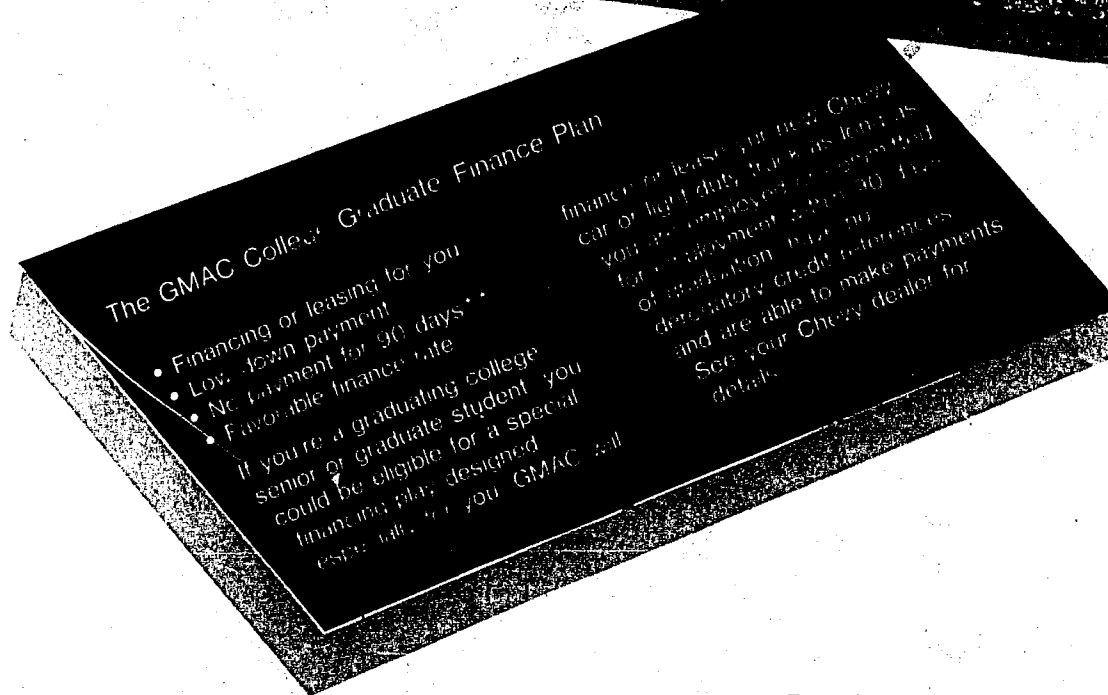 The GMAC College Graduate Finance Plan
• Financing or leasing for you
• Low down payment
• No payment for 90 days**
• Favorable finance rate
If you're a graduating college
senior or graduate student you
could be eligible for a special
financing plan designed
especially for you GMAC will
finance or lease your new Chevy
car or light duty truck as long as
you are employed or committed
for employment within 90
of graduation have no
derogatory credit references
and are able to make payments
See your Chevy dealer for
details